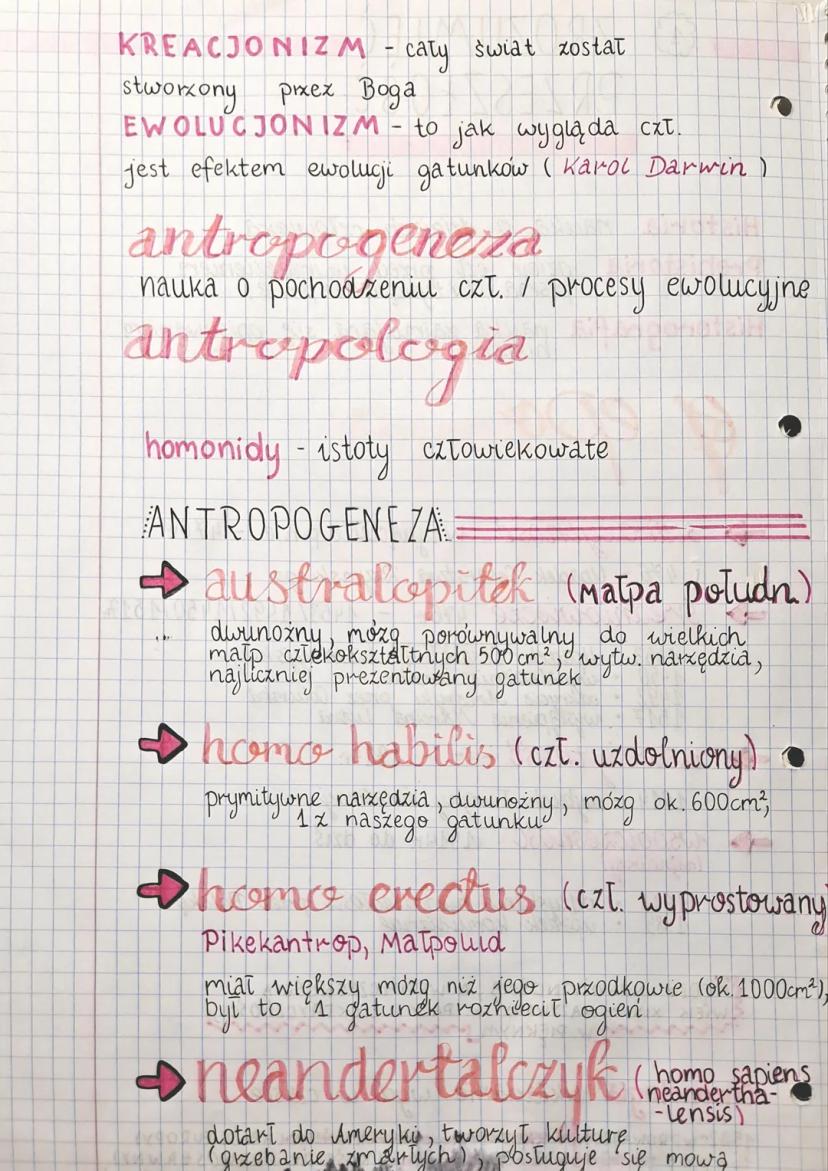 KREACJONIZM - cały świat został
stworzony przez Boga
EWOLUCJONIZM - to jak wygląda czł.
jest efektem ewolucji gatunków (Karol Darwin)
antropogeneza
nauka o pochodzeniu czł. / procesy ewolucyjne
antropologia
homonidy - istoty człowiekowate
ANTROPOGENEZA
→ australopitek (małpa połudn.)
dwunożny, mózg porównywalny do wielkich
małp człekokształtnych 500 cm², wytw. narzędzia,
najliczniej prezentowany gatunek
→ homo habilis (czł. uzdolniony)
prymitywne narzędzia, dwunożny, mózg ok. 600cm²,
1 z naszego gatunku
→ homo erectus (czł. wyprostowany)
Pikekantrop, Małpolud
miał większy mózg niż jego przodkowie (ok. 1000cm²),
był to 1 gatunek rozniecił ogień
→ neandertalczyk (homo sapiens
neandertha-
-lensis)
dotarł do Ameryki, tworzył kulturę
(grzebanie zmarłych), posługuje się mową